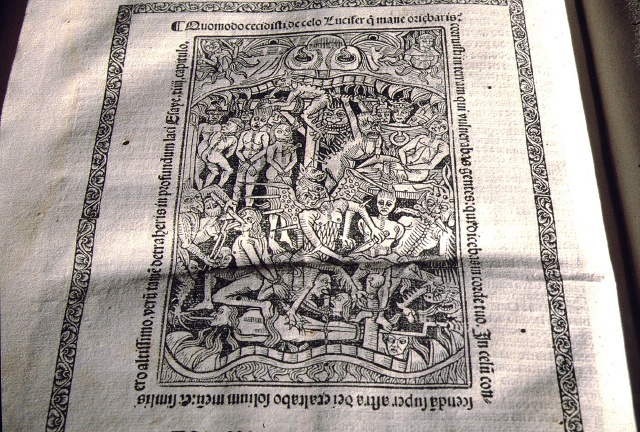 ¶ Quomodo cecidisti de celo Lucifer q̃ mane oriebaris:
corruisti in terram qui vulnerabas gentes: qui dicebas in corde tuo. In celũ con-
scendã super astra dei exaltabo solium meũ: & similis
ero altissimo, verũtamẽ detraheris in profundum laci Esaye. xiiij. capitulo.